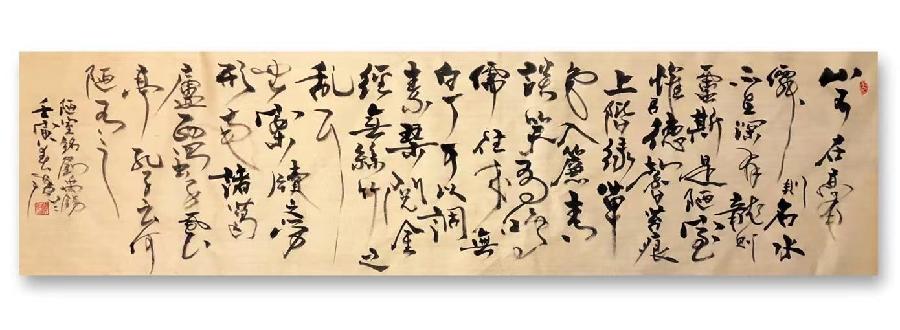 山不在高有
仙则名水
不在深有龍则
靈斯是陋室
惟吾德馨苔痕
上階緑草
色入簾青
談笑有鴻
儒往来無
白丁可以調
素琴閲金
經無絲竹之
乱耳無
案牘之勞
形南陽諸葛
廬西蜀子雲
亭孔子云何
陋有之
陋室銘劉禹錫
壬寅